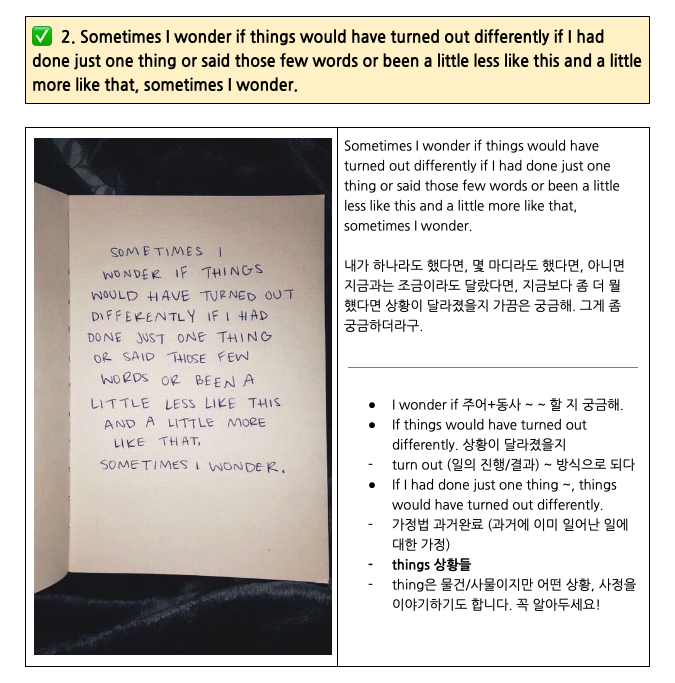 ✅ 2. Sometimes I wonder if things would have turned out differently if I had
done just one thing or said those few words or been a little less like this and a little
more like that, sometimes I wonder.
SOMETIMES I
WONDER IF THINGS
WOULD HAVE TURNED OUT
DIFFERENTLY IF I HAD
DONE JUST ONE THING
OR SAID THOSE FEW
WORDS OR BEEN A
LITTLE LESS LIKE THIS
AND A LITTLE MORE
LIKE THAT,
SOMETIMES I WONDER.
Sometimes I wonder if things would have
turned out differently if I had done just one
thing or said those few words or been a little
less like this and a little more like that,
sometimes I wonder.
내가 하나라도 했다면, 몇 마디라도 했다면, 아니면
지금과는 조금이라도 달랐다면, 지금보다 좀 더 뭘
했다면 상황이 달라졌을지 가끔은 궁금해. 그게 좀
궁금하더라구.
● I wonder if 주어+동사 ~ ~ 할 지 궁금해.
● If things would have turned out
differently. 상황이 달라졌을지
- turn out (일의 진행/결과) ~ 방식으로 되다
● If I had done just one thing ~, things
would have turned out differently.
- 가정법 과거완료 (과거에 이미 일어난 일에
대한 가정)
- things 상황들
- thing은 물건/사물이지만 어떤 상황, 사정을
이야기하기도 합니다. 꼭 알아두세요!